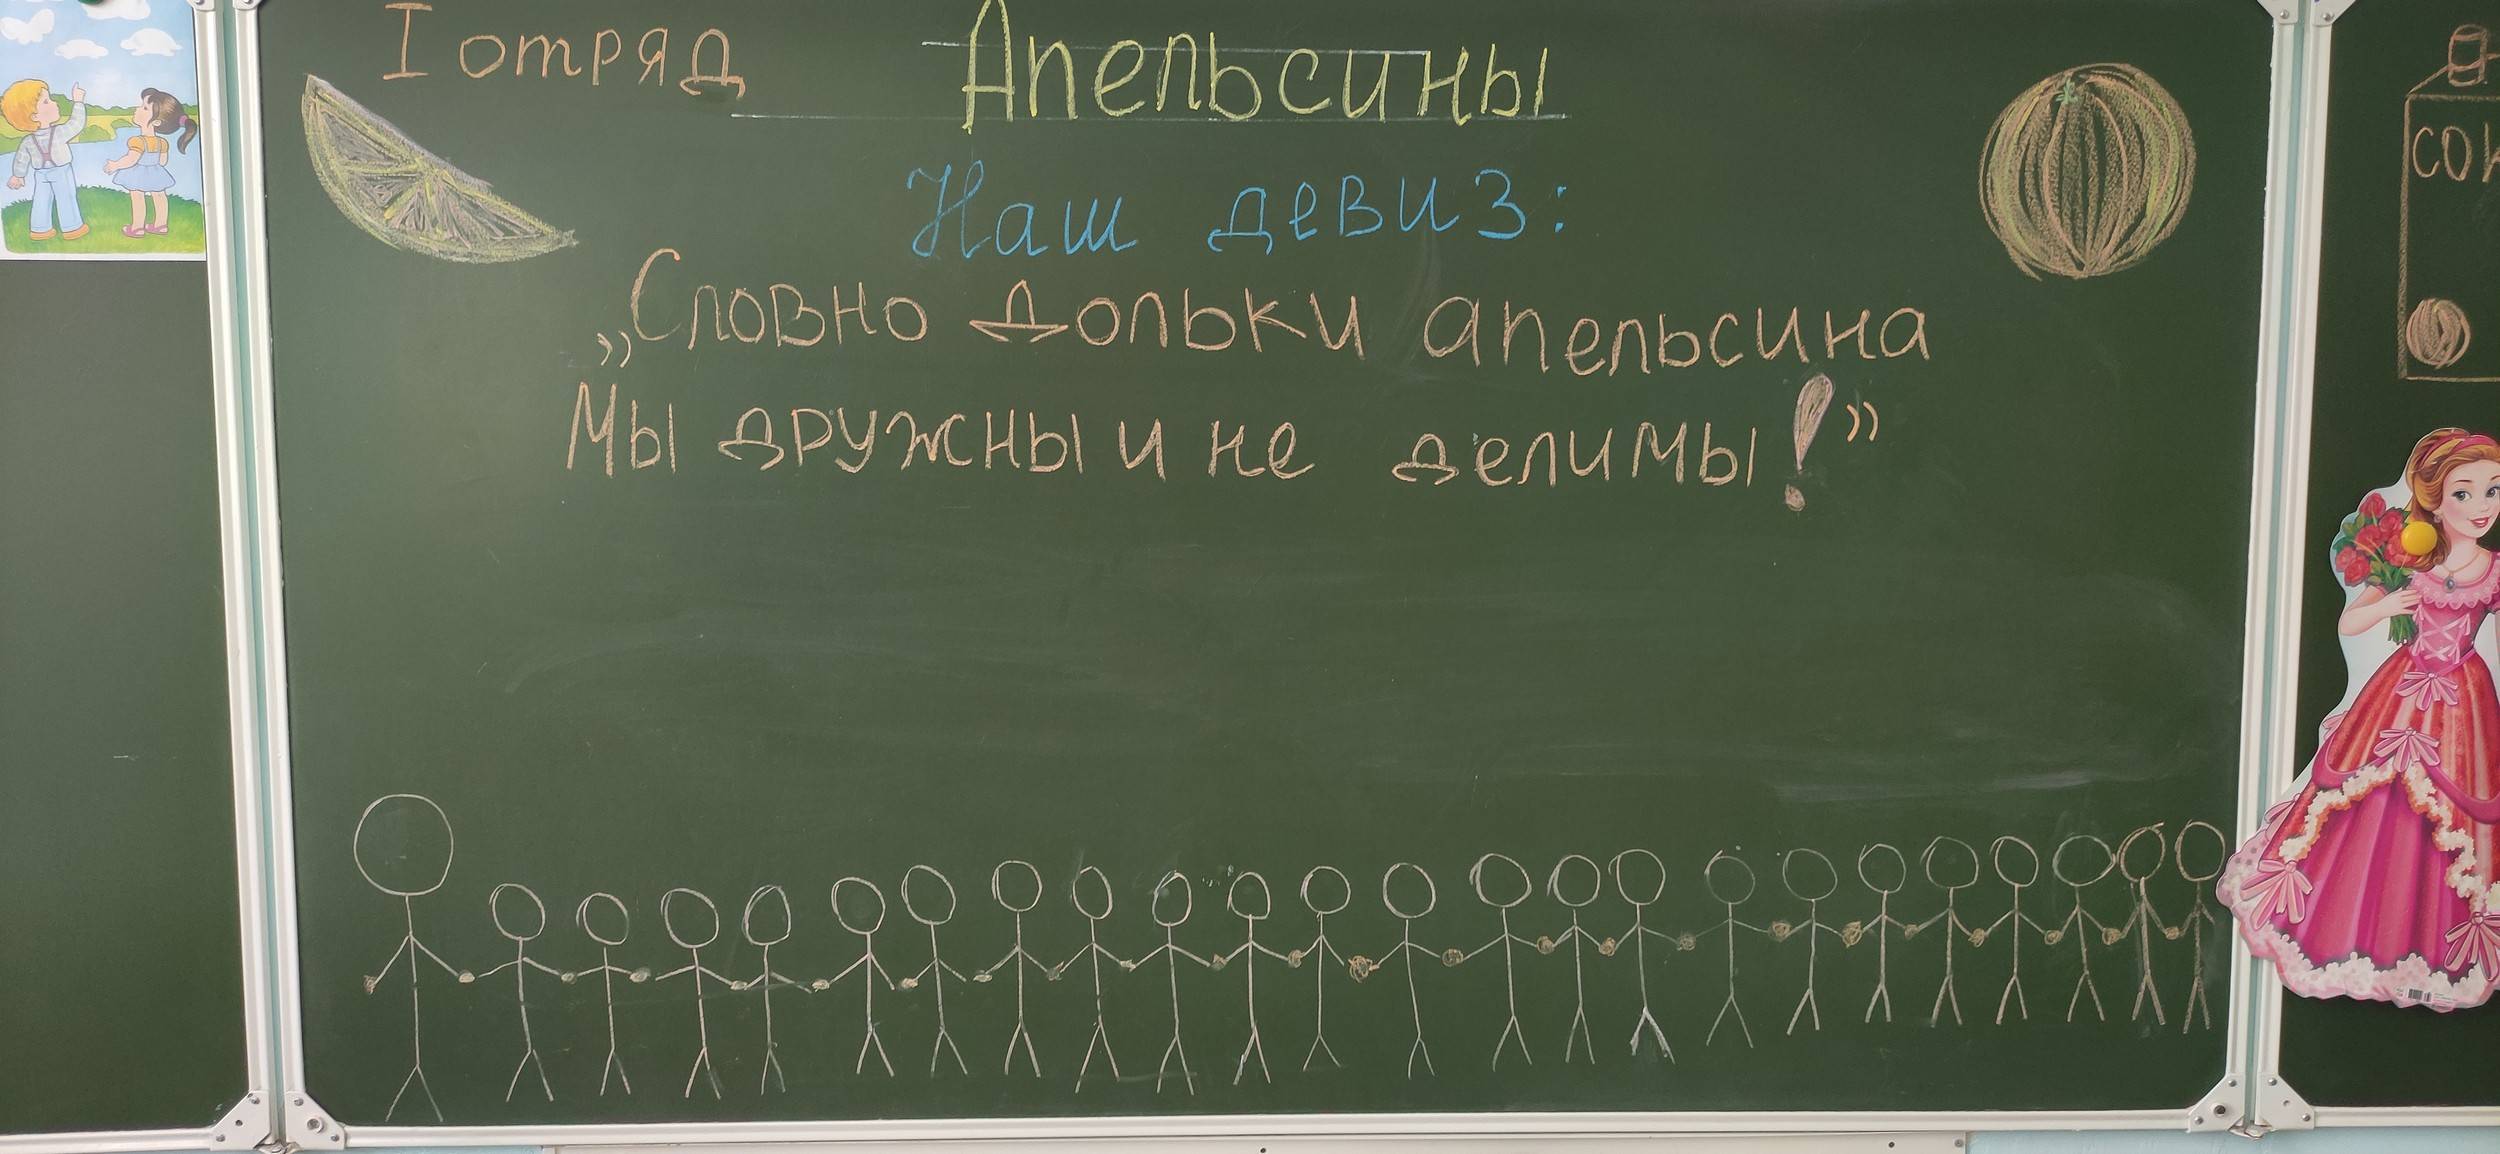 I отряд Апельсины
Наш девиз:
„Словно дольки апельсина
Мы дружны и не делимы!”
сок